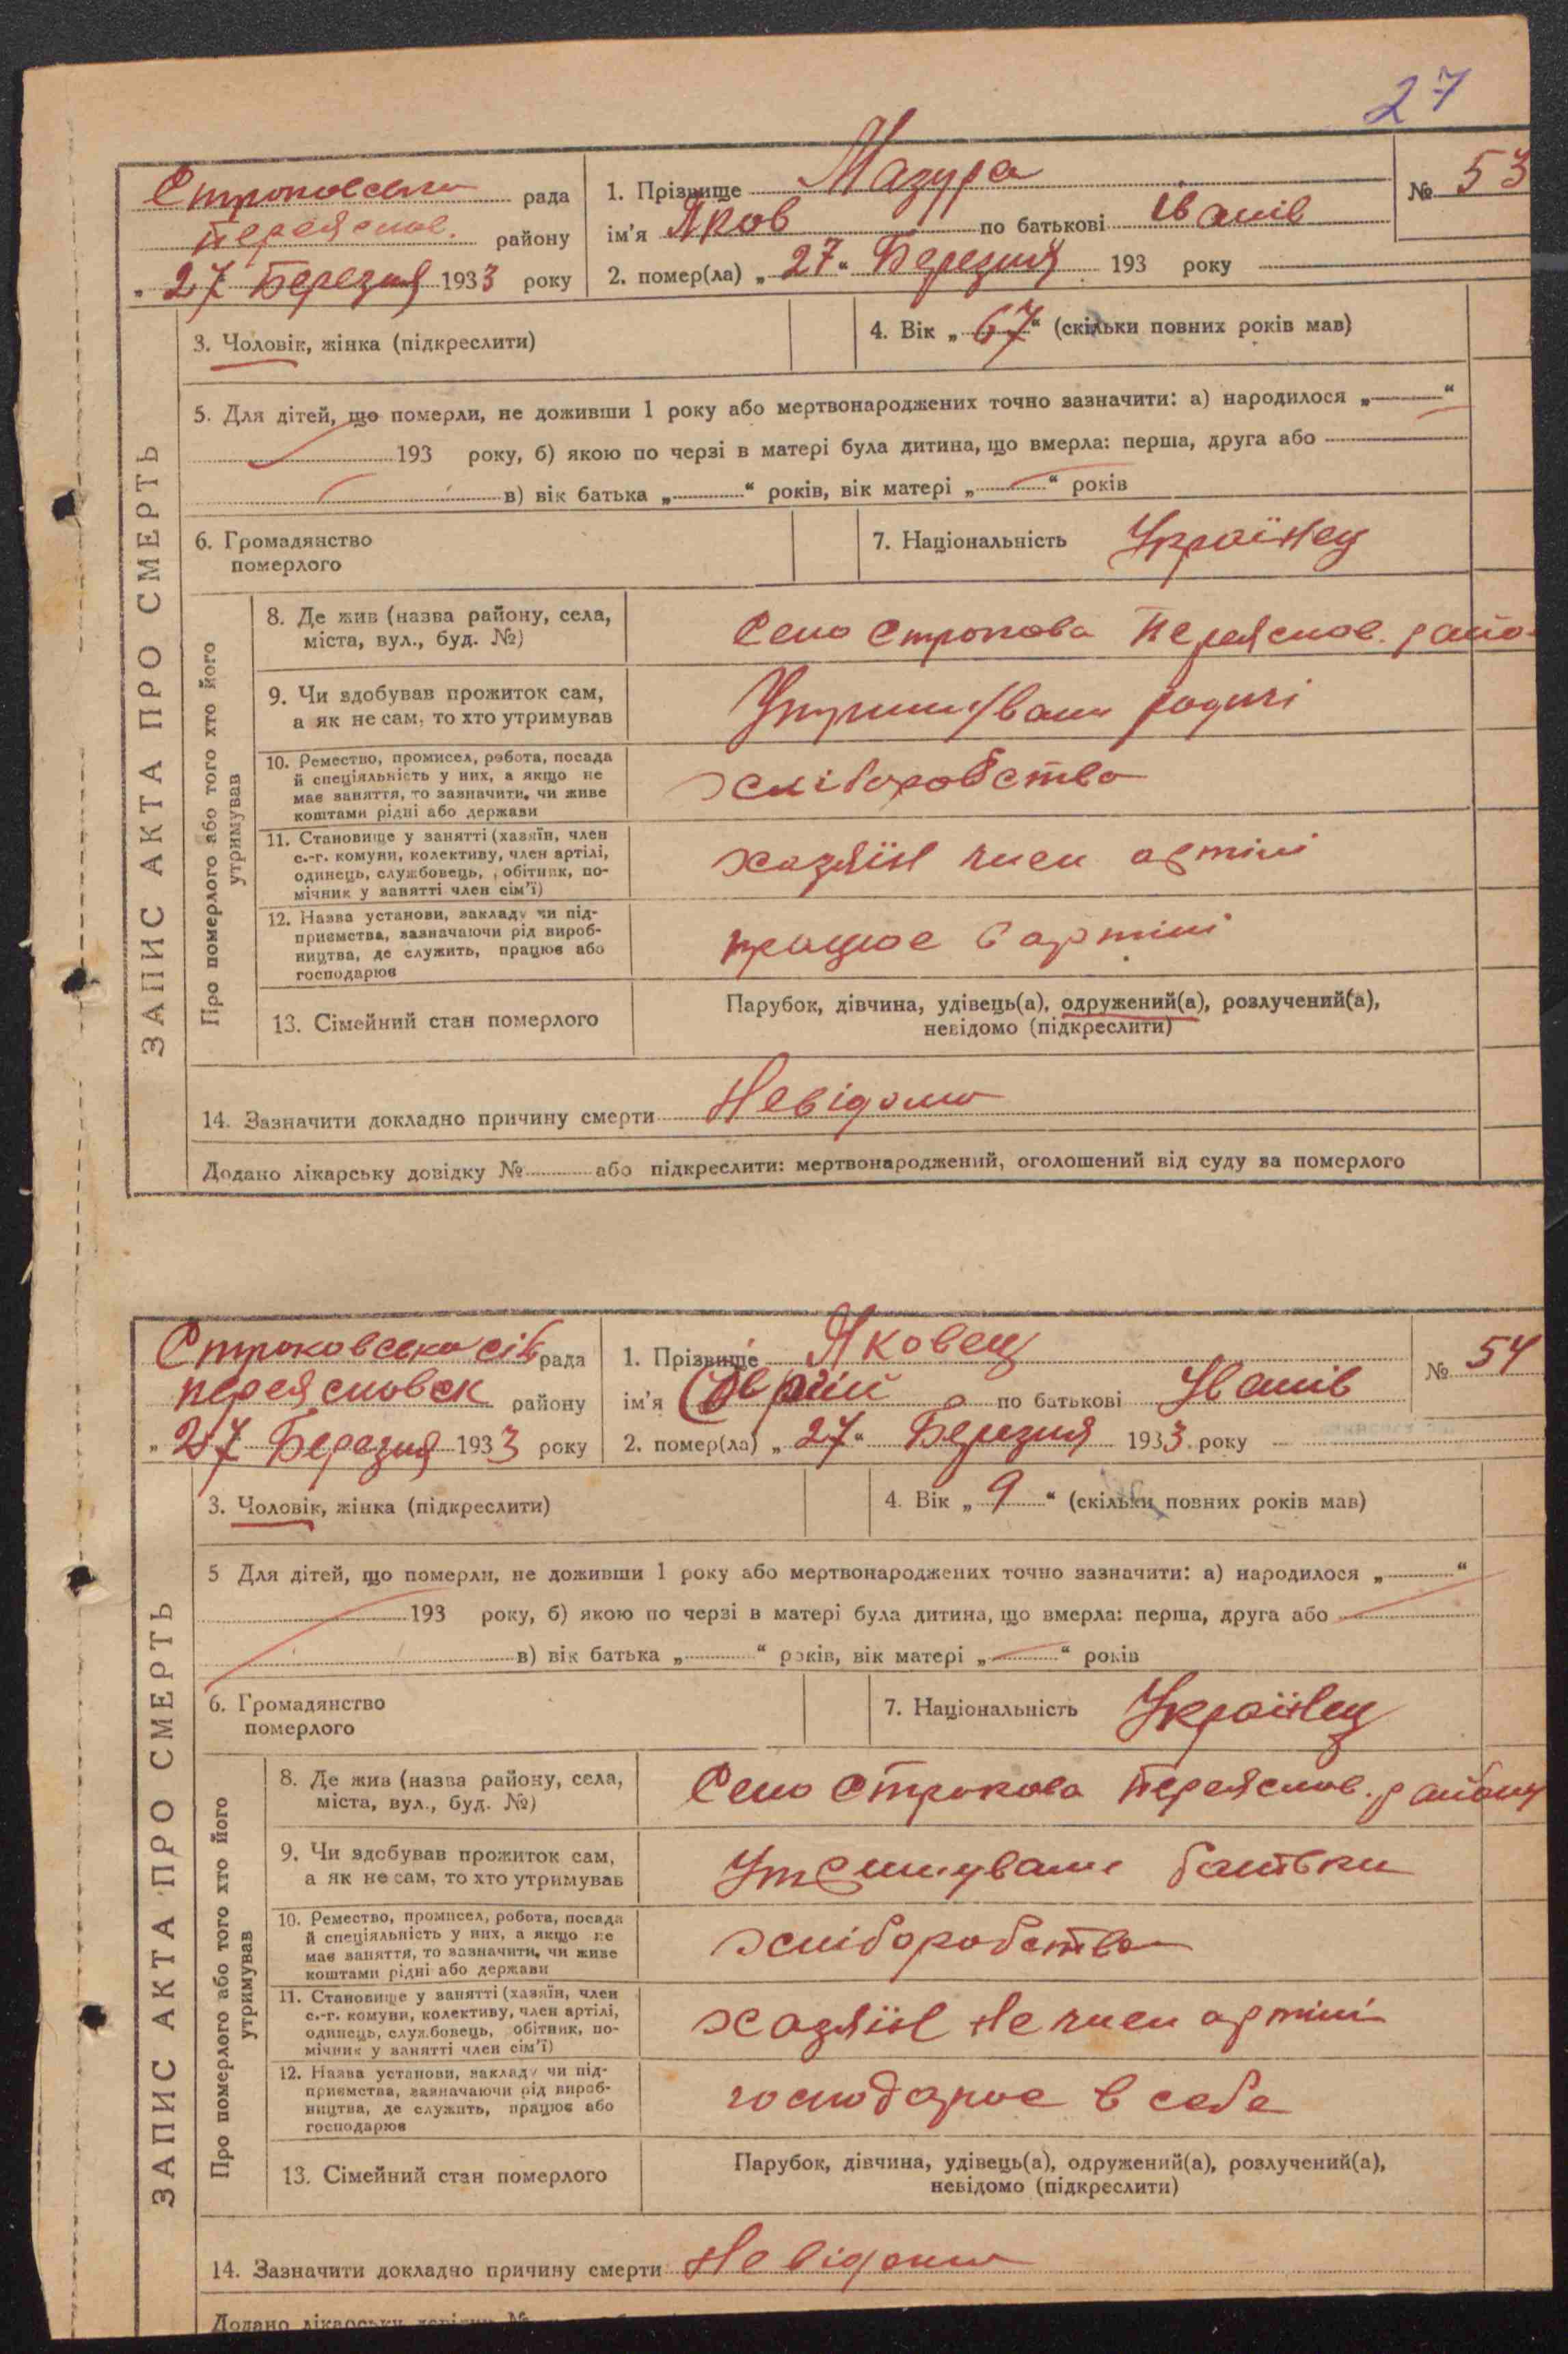 27
ЗАПИС АКТА ПРО СМЕРТЬ
Строковська рада
Переяслов. району
„ 27 Березня 1933 року
1. Прізвище Мазура
ім'я Яков по батькові Іванів
2. помер(ла) „ 27 “ Березня 193 року
№ 53
3. Чоловік, жінка (підкреслити)
4. Вік „ 67 “ (скільки повних років мав)
5. Для дітей, що померли, не доживши 1 року або мертвонароджених точно зазначити: а) народилося „ “
193 року, б) якою по черзі в матері була дитина, що вмерла: перша, друга або
в) вік батька „ “ років, вік матері „ “ років
6. Громадянство
померлого
7. Національність Україінец
Про померлого або того хто його
утримував
8. Де жив (назва району, села,
міста, вул., буд. №)
Село Строкова Переяслов. райо-
9. Чи здобував прожиток сам,
а як не сам, то хто утримував
10. Ремество, промисел, робота, посада
й спеціяльність у них, а якщо не
має заняття, то зазначити, чи живе
коштами рідні або держави
хліборобство
11. Становище у занятті (хазяїн, член
с.-г. комуни, колективу, член артілі,
одинець, службовець, обітник, по-
мічник у занятті член сім'ї)
хазяін член артілі
12. Назва установи, закладу чи під-
приємства, зазначаючи рід вироб-
ництва, де служить, працює або
господарює
працює в артілі
13. Сімейний стан померлого
Парубок, дівчина, удівець(а), одружений(а), розлучений(а),
невідомо (підкреслити)
14. Зазначити докладно причину смерти Невідомо
Додано лікарську довідку № або підкреслити: мертвонароджений, оголошений від суду за померлого
ЗАПИС АКТА ПРО СМЕРТЬ
Строковська сіл рада
переясловск району
„ 27 Березня 1933 року
1. Прізвище Яковец
ім'я по батькові Иванів
2. помер(ла) „ 27 “ Березня 1933 року
№ 54
3. Чоловік, жінка (підкреслити)
4. Вік „ 9 “ (скільки повних років мав)
5 Для дітей, що померли, не доживши 1 року або мертвонароджених точно зазначити: а) народилося „ “
193 року, б) якою по черзі в матері була дитина, що вмерла: перша, друга або
в) вік батька „ “ років, вік матері „ “ років
6. Громадянство
померлого
7. Національність Україінец
Про померлого або того хто його
утримував
8. Де жив (назва району, села,
міста, вул., буд. №)
Село Строкова Переяслов. району
9. Чи здобував прожиток сам,
а як не сам, то хто утримував
батьки
10. Ремество, промисел, робота, посада
й спеціяльність у них, а якщо не
має заняття, то зазначити, чи живе
коштами рідні або держави
хліборобство
11. Становище у занятті (хазяїн, член
с.-г. комуни, колективу, член артілі,
одинець, службовець, обітник, по-
мічник у занятті член сім'ї)
хазяін не член артілі
12. Назва установи, закладу чи під-
приємства, зазначаючи рід вироб-
ництва, де служить, працює або
господарює
господарює в себе
13. Сімейний стан померлого
Парубок, дівчина, удівець(а), одружений(а), розлучений(а),
невідомо (підкреслити)
14. Зазначити докладно причину смерти Невідомо
Додано лікарську довідку №